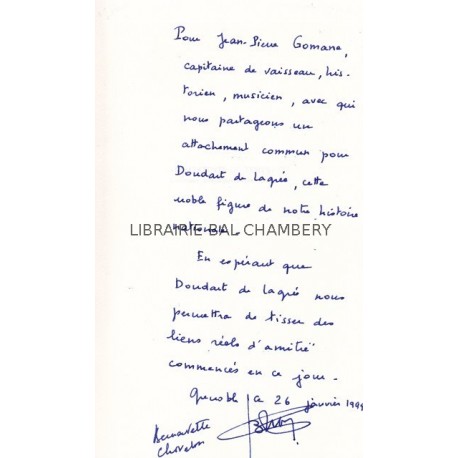 Pour Jean-Pierre Gomane,
capitaine de vaisseau, his-
torien, musicien, avec qui
nous partageons un
attachement commun pour
Doudart de Lagrée, cette
noble figure de notre histoire
nationale.
LIBRAIRIE BAL CHAMBERY
En espérant que
Doudart de Lagrée nous
permettra de tisser des
liens réels d'amitié
commencés en ce jour.
Grenoble le 26 janvier 199
Bernadette
Chovelon